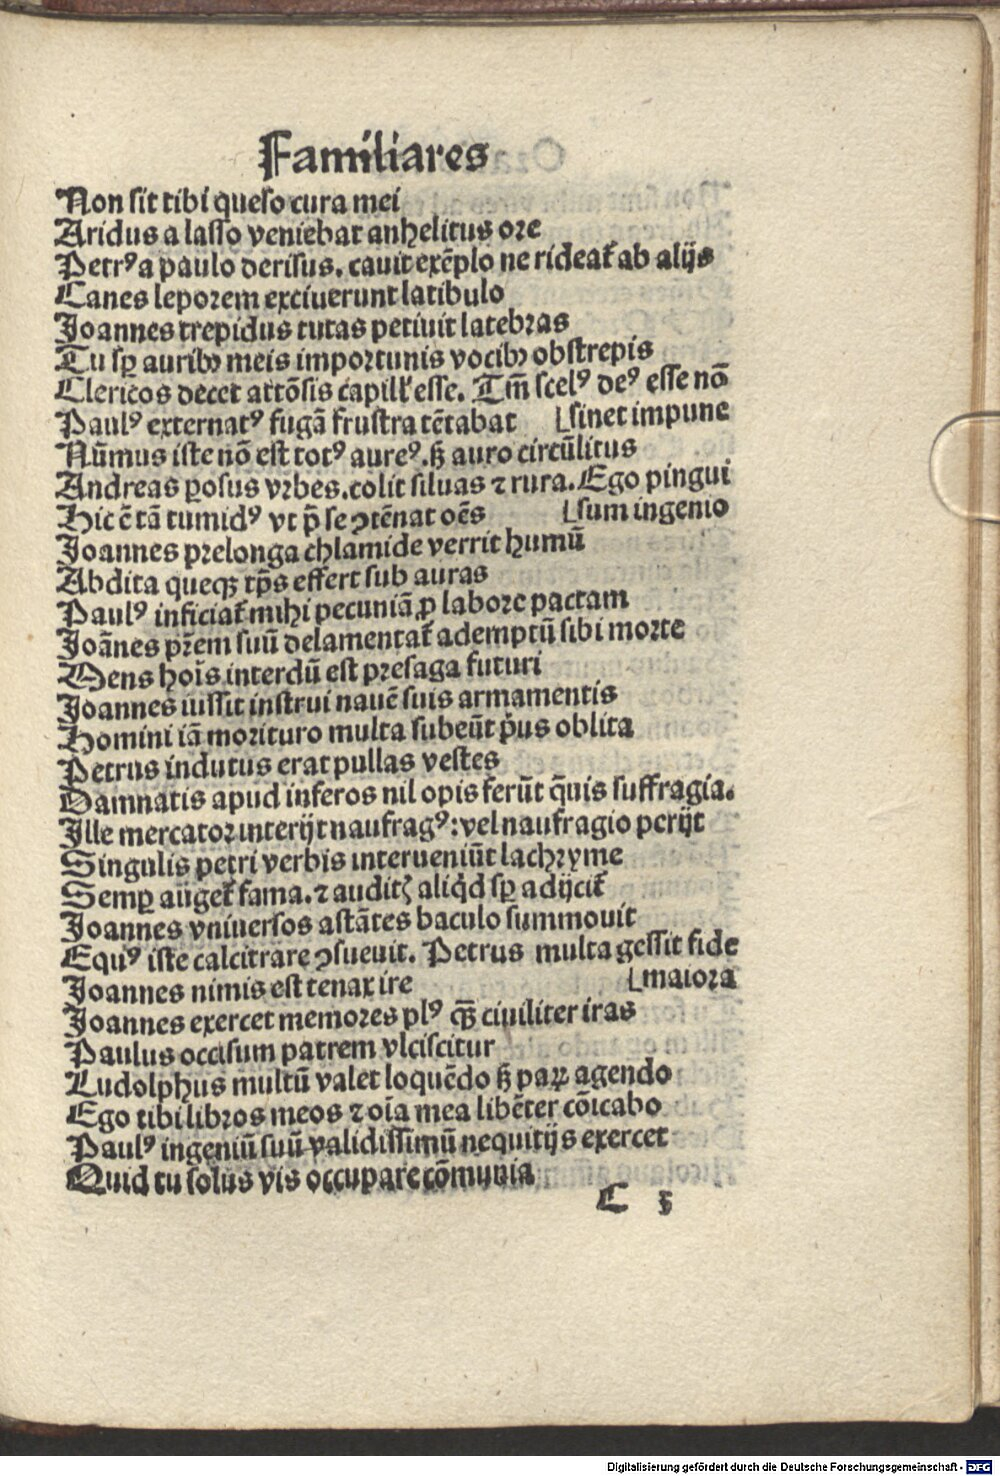 Familiares
Non sit tibi queso cura mei
Aridus a lasso veniebat anhelitus ore
Petrꝰ a paulo derisus. cauit exẽplo ne rideat᷑ ab alijs
Canes leporem exciuerunt latibulo
Joannes trepidus tutas petiuit latebras
Tu sꝑ auribꝫ meis importunis vocibꝫ obstrepis
Clericos decet attõsis capill' esse. Tm̃ scelꝰ deꝰ esse nõ
Paulꝰ externatꝰ fugã frustra tẽtabat ⌊sinet impune
Nũmus iste nõ est totꝰ aureꝰ. ꝫ auro circũlitus
Andreas ꝑosus vrbes. colit siluas ⁊ rura. Ego pingui
Hic ẽ tã tumidꝰ vt p̃ se ꝯtẽnat oẽs ⌊sum ingenio
Joannes prelonga chlamide verrit humũ
Abdita queqꝫ tp̃s effert sub auras
Paulꝰ inficiat᷑ mihi pecuniã ꝓ labore pactam
Joãnes pr̃em suũ delamentat᷑ ademptũ sibi morte
Mens hoĩs interdũ est presaga futuri
Joannes iussit instrui nauẽ suis armamentis
Homini iã morituro multa subeũt pͥus oblita
Petrus indutus erat pullas vestes
Damnatis apud inferos nil opis ferũt q̃uis suffragia.
Ille mercator interijt naufragꝰ: vel naufragio perijt
Singulis petri verbis interueniũt lachryme
Semꝑ auget᷑ fama. ⁊ auditꝭ aliqͥd sꝑ adijcit᷑
Joannes vniuersos astãtes baculo summouit
Equꝰ iste calcitrare ꝯsueuit. Petrus multa gessit fide
Joannes nimis est tenax ire ⌊maiora
Joannes exercet memores plꝰ qꝫ̃ ciuiliter iras
Paulus occisum patrem vlciscitur
Ludolphus multũ valet loquẽdo ꝫ paꝝ agendo
Ego tibi libros meos ⁊ oĩa mea libẽter cõicabo
Paulꝰ ingeniũ suũ validissimũ nequitijs exercet
Quid tu solus vis occupare cõmunia
C 5
Digitalisierung gefördert durch die Deutsche Forschungsgemeinschaft - DFG